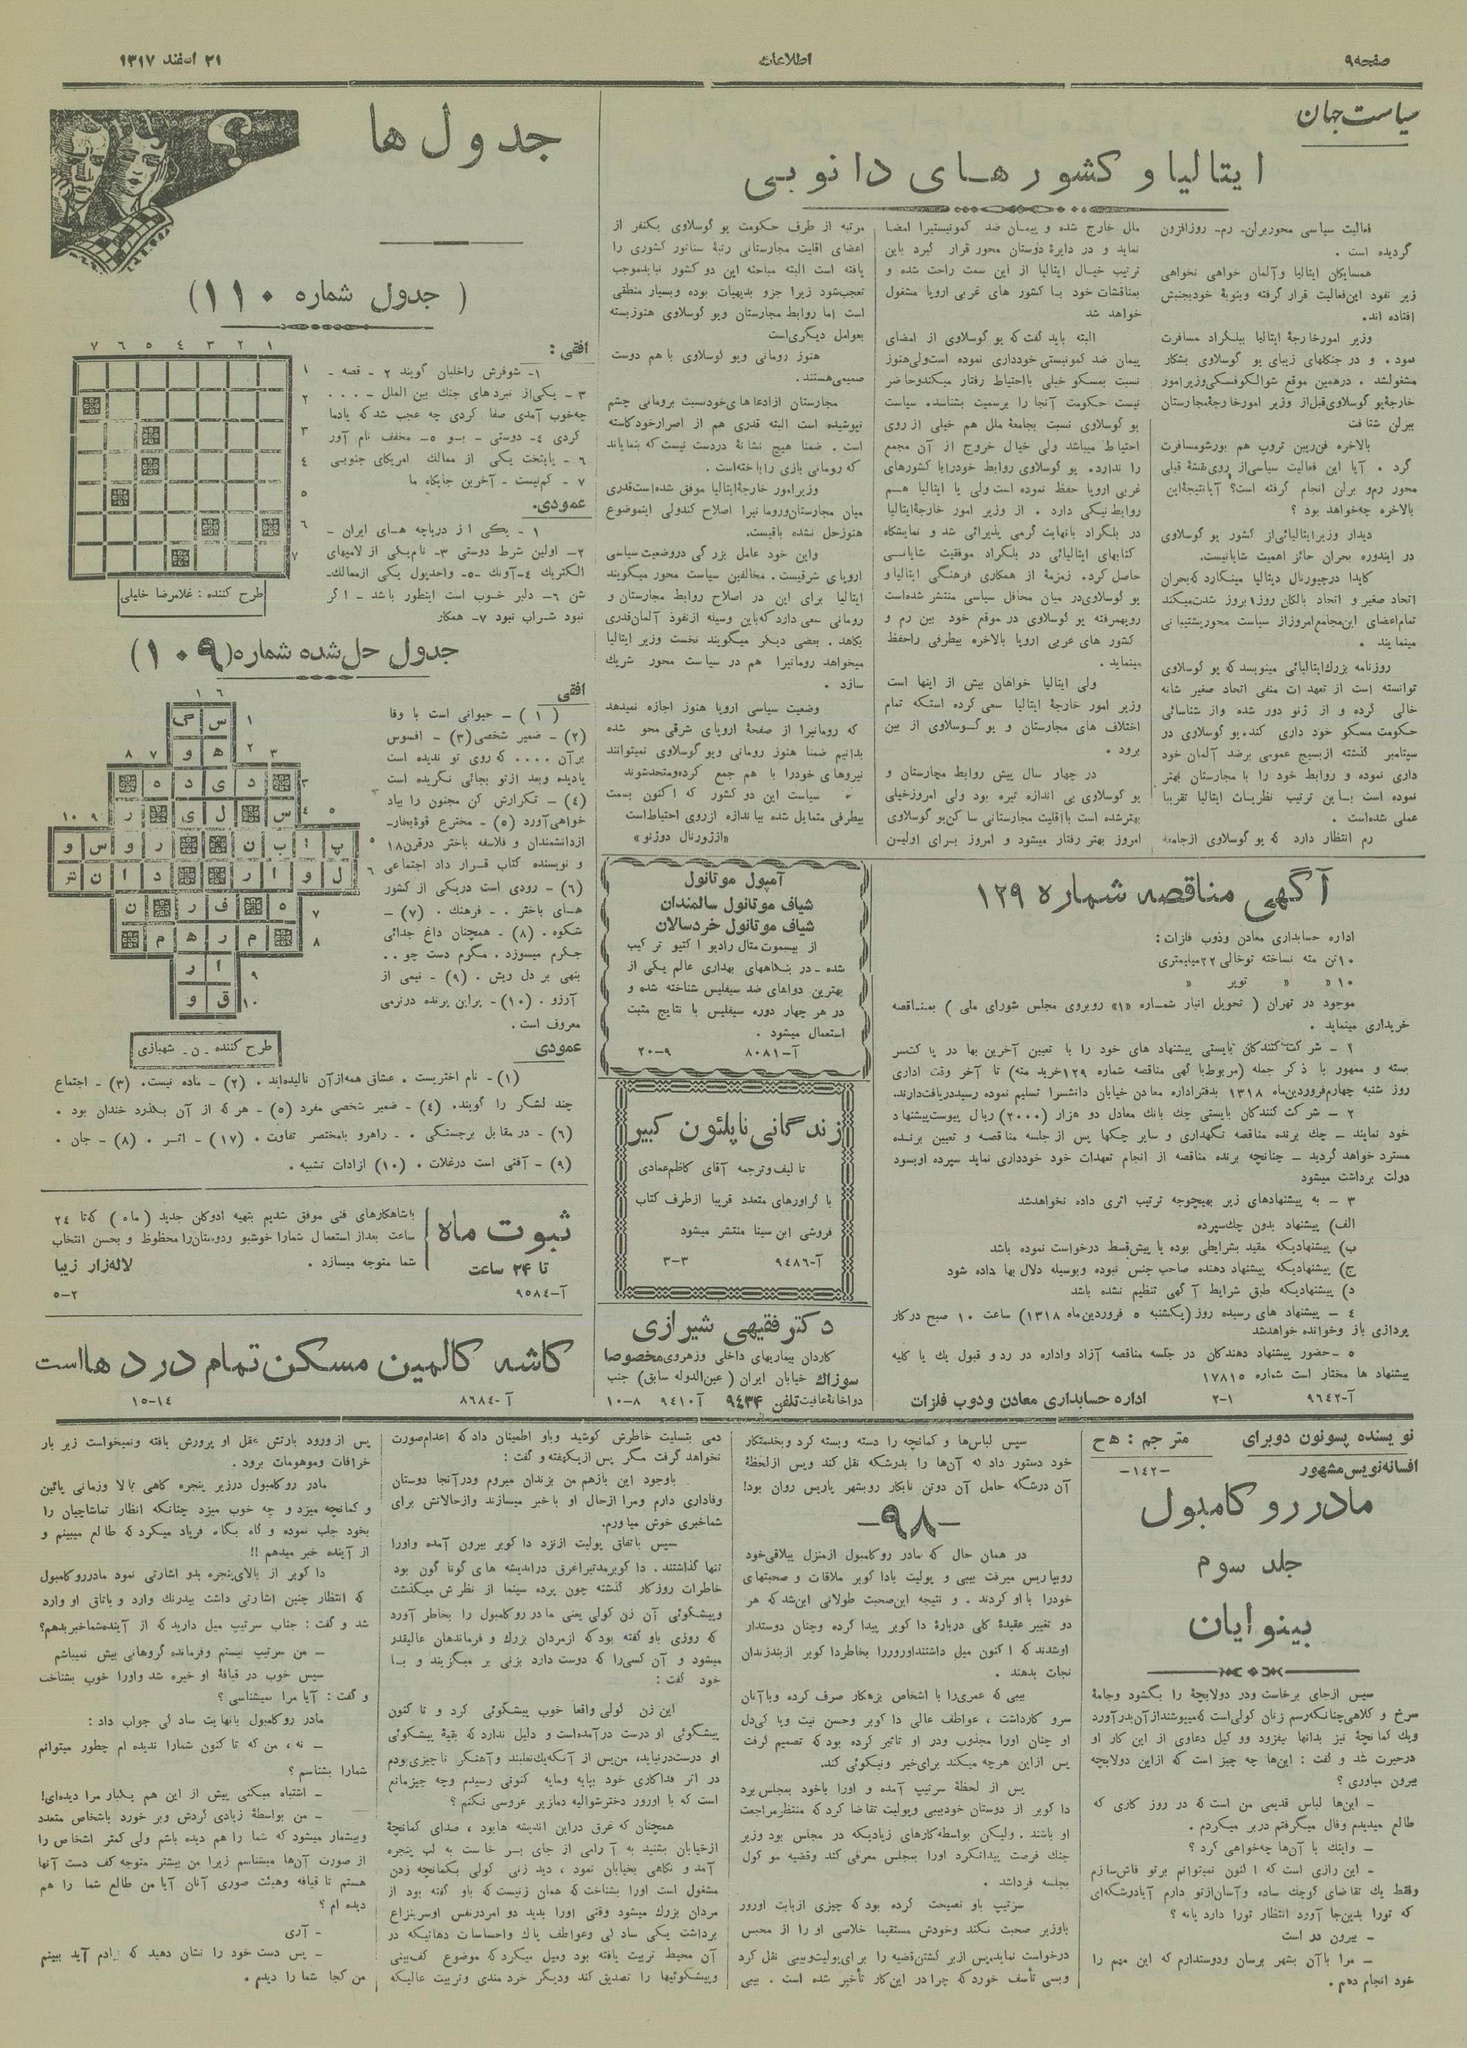 صفحه۹
اطلاعات
۲۱ اسفند ۱۳۱۷
سیاست جهان
ایتالیا و کشورهای دانوبی
فعالیت سیاسی محوربرلن- رم- روزافزون
گردیده است .
همسایگان ایتالیا وآلمان خواهی نخواهی
زیر نفوذ این‌فعالیت قرار گرفته وبنوبهٔ خودبجنبش
افتاده اند.
وزیر امورخارجهٔ ایتالیا ببلگراد مسافرت
نمود . و در جنگلهای زیبای یو گوسلاوی بشکار
مشغولشد . درهمین موقع شوالکوفسکی‌وزیرامور
خارجهٔ‌یو گوسلاوی قبل‌از وزیر امورخارجهٔ‌مجارستان
ببرلن شتافت
بالاخره فن‌ریبن تروپ هم بورشومسافرت
کرد . آیا این فعالیت سیاسی‌از روی‌نقشهٔ قبلی
محور رم‌و برلن انجام گرفته است؟ آیانتیجهٔ‌این
بالاخره چه‌خواهد بود ؟
دیدار وزیرایتالیائی‌از کشور یو گوسلاوی
در ایندوره بحران حائز اهمیت شایانیست.
کایدا درجیورنال دیتالیا مینگارد که‌بحران
اتحاد صغیر و اتحاد بالکان روز۱بروز شدت‌میکند
تمام‌اعضای این‌مجامع‌امروزاز سیاست محورپشتیبانی
مینمایند .
روزنامه بزرك‌ایتالیائی مینویسد که یو گوسلاوی
توانسته است از تعهدات منفی اتحاد صغیر شانه
خالی کرده و از ژنو دور شده واز شناسائی
حکومت مسکو خود داری کند.یو گوسلاوی در
سپتامبر گذشته ازبسیج عمومی برضد آلمان خود
داری نموده و روابط خود را با مجارستان بهتر
نموده است بـاین ترتیب نظریـات ایتالیا تقریبا
عملی شده‌است .
رم انتظار دارد که یو گوسلاوی ازجامعه
ملل خارج شده و پیمـان ضد کمونیستیرا امضا
نماید و در دایرهٔ دوستان محور قرار گیرد باین
ترتیب خیـال ایتالیا از این سمت راحت شده و
بمناقشات خود بـا کشور های غربی اروپا مشغول
خواهد شد
البته باید گفت‌که یو گوسلاوی از امضای
پیمان ضد کمونیستی خودداری نموده است‌ولی‌هنوز
نسبت بمسکو خیلی بااحتیاط رفتار میکندوحاضر
نیست حکومت آنجا را برسمیت بشناسد. سیاست
یو گوسلاوی نسبت بجامعهٔ ملل هم خیلی ازروی
احتیاط میباشد ولی خیال خروج از آن مجمع
را ندارد. یو گوسلاوی روابط خودراباکشورهای
غربی اروپا حفظ نموده است ولی با ایتالیا هـم
روابط‌نیکی دارد . از وزیر امور خارجهٔ‌ایتالیا
در بلگراد بانهایت گرمی پذیرائی شد و نمایشگاه
کتابهای ایتالیائی در بلگراد موفقیت شایـانـی
حاصل کرد. زمزمهٔ از همکاری فرهنگی ایتالیاو
یو گوسلاوی‌در میان محافل سیاسی منتشر شده‌است
رویهمرفته یو گوسلاوی در موقع خود بین رم و
کشور های غربی اروپا بالاخره بیطرفی راحفظ
مینماید .
ولی ایتالیا خواهان بیش از اینها است
وزیر امور خارجهٔ ایتالیا سعی کرده استکه تمام
اختلاف های مجارستان و یو گـوسلاوی از بین
برود .
در چهار سال پیش روابط مجارستان و
یو گوسلاوی بی اندازه تیره بود ولی امروزخیلی
بهترشده است بااقلیت مجارستانی ساکن‌یو گوسلاوی
امروز بهتر رفتار میشود و امروز بـرای اولیـن
مرتبه از طرف حکومت یو گوسلاوی یکنفر از
اعضای اقلیت مجارستانی رتبهٔ سناتور کشوری را
یافته است البته مباحثه این دو کشور نبایدموجب
تعجب‌شود زیرا جزو بدیهیات بوده وبسیار منطقی
است اما روابط مجارستان ویو گوسلاوی هنوزبسته
بعوامل دیگری‌است
هنوز رومانی ویو گوسلاوی باهم دوست
صمیمی‌هستند .
مجارستان ازادعاهای خودنسبت برومانی چشم
نپوشیده است البته قدری هم از اصرارخودکاسته
است . ضمنا هیچ نشانهٔ دردست نیست که بنمایاند
که رومانی بازی راباخته‌است .
وزیرامور خارجهٔ‌ایتالیا موفق شده‌است‌قدری
میان مجارستان‌ورومانیرا اصلاح کندولی اینموضوع
هنوزحل نشده باقیست.
واین خود عامل بزرگی دروضعیت سیاسی
اروپای شرقیست. مخالفین سیاست محور میگویند
ایتالیا برای این در اصلاح روابط مجارستان و
رومانی سعی دارد که‌باین وسیله ازنفوذ آلمان‌قدری
بکاهد. بعضی دیگر میگویند نخست وزیر ایتالیا
میخواهد رومانیرا هم در سیاست محور شریك
سازد .
وضعیت سیاسی اروپا هنوز اجازه نمیدهد
که رومانیرا از صفحهٔ اروپای شرقی محو شده
بدانیم ضمنا هنوز رومانی ویو گوسلاوی نمیتوانند
نیروهای خودرا با هم جمع کرده‌ومتحدشوند
سیاست این دو کشور که اکنون بسمت
بیطرفی متمایل شده بیاندازه ازروی احتیاط‌است
«ازژورنال دوژنو»
جدول ها
( جدول شماره ۱۱۰ )
۱ ۲ ۳ ۴ ۵ ۶ ۷
۱
۲
۳
۴
۵
۶
۷
طرح کننده : غلامرضا خلیلی
افقی :
۱- شوفرش راخلبان گویند ۲ - قصه -
۳ - یکی‌از نبردهای جنك بین الملل - . . .
چه‌خوب آمدی صفا کردی چه عجب شد که یادما
کردی ۴- دوستی - بـو ۵- مخفف نام آور
۶ - پایتخت یکی از ممالك امریکای جنوبی
۷ - کم‌نیست - آخرین جایگاه ما
عمودی.
۱ - یکی از دریاچه های ایران -
۲- اولین شرط دوستی ۳- نام‌یکی از لامپهای
الکتریك ۴-آونك -۵- واحدپول یکی ازممالك-
شن ۶- دلبر خوب است اینطور باشد - اگر
نبود شراب نبود ۷- همکار
جدول حل‌شده شماره(۱۰۹)
س گ
ه و
د ی د ه
س ل ی ر
پ ا پ ن ر و س و
ل و ا ر د ا ن ت
ه ف ر ن
م ر ه م
ا ر
ق و
طرح کننده - ن - شهبازی
افقی
(۱) - حیوانی است با وفا
(۲)- ضمیر شخصی(۳) - افسوس
برآن .... که روی تو ندیده است
یادیده وبعد ازتو بجائی نگریده است
(۴) - تکرارش کن مجنون را بیاد
خواهی‌آورد (۵) - مخترع قوهٔ‌بخار-
ازدانشمندان و فلاسفه باختر درقرن۱۸
و نویسنده کتاب قـرار داد اجتماعی
(۶) - رودی است دریکی از کشور
هـای باختر . - فرهنك . (۷) -
شکوه . (۸) - همچنان داغ جدائی
جگرم میسوزد . مگرم دست چو . .
بنهی بر دل ریش . (۹) - نیمی از
آرزو . (۱۰) - پراین پرنده درنرمی
معروف است .
عمودی
(۱)- نام اختریست . عشاق همه‌ازآن نالیده‌اند . (۲) - ماده نیست. (۳) - اجتماع
چند لشگر را گویند. (۴) - ضمیر شخصی مفرد (۵) - هرکه از آن بگذرد خندان بود .
(۶) - در مقابل برجستگی . - راهرو بامختصر تفاوت . (۱۷) - اثـر . (۸) - جان .
(۹) - آفتی است درغلات . (۱۰) ازادات تشبیه .
ثبوت ماه
تا ۲۴ ساعت
آ-۹۵۸۴
باشاهکارهای فنی موفق شدیم بتهیه ادوکلن جدید (ماه) که‌تا ۲۴
ساعت بعداز استعمال شمارا خوشبو ودوستان‌رامحظوظ و بحسن انتخاب
شما متوجه میسازد .
لاله‌زار زیبا
۵-۲
کاشه کالمین مسکن تمام دردهااست
آ-۸۶۸۴
۱۵-۱۴
آمپول موتانول
شیاف موتانول سالمندان
شیاف موتانول خردسالان
از بیسموت متال رادیو اکتیو ترکیب
شده - در بنگاههای بهداری عالم یکی از
بهترین دواهای ضد سیفلیس شناخته شده و
در هر چهار دوره سیفلیس با نتایج مثبت
استعمال میشود .
آ-۸۰۸۱
۲۰-۹
زندگانی ناپلئون کبیر
تألیف وترجمه آقای کاظم‌عمادی
با گراورهای متعدد قریبا ازطرف کتاب
فروشی ابن سینا منتشر میشود
آ-۹۴۸۶
۳-۳
دکتر فقیهی شیرازی
کاردان بیماریهای داخلی وزهروی مخصوصا
سوزاك خیابان ایران (عین‌الدوله سابق) جنب
دواخانهٔ‌عافیت تلفن ۹۴۳۴ آ-۹۴۱۰ ۱۰-۸
آگهی مناقصه شماره ۱۲۹
اداره حسابداری معادن وذوب فلزات :
۱۰تن مته نساخته توخالی ۲۲میلیمتری
۱۰ « » توپر »
موجود در تهران ( تحویل انبار شمـاره «۱» روبروی مجلس شورای ملی ) بمنـاقصه
خریداری مینماید .
۱ - شرکت‌کنندگان بایستی پیشنهاد های خود را با تعیین آخرین بها در پاکتسر
بسته و ممهور با ذکر جمله (مربوط‌با گهی مناقصه شماره ۱۲۹خرید مته) تا آخر وقت اداری
روز شنبه چهارم‌فروردین‌ماه ۱۳۱۸ بدفتراداره معادن خیابان دانشسرا تسلیم نموده رسیددریافت‌دارند.
۲ - شرکت کنندگان بایستی چك بانك معادل دو هزار (۲۰۰۰) ریال پیوست‌پیشنهاد
خود نمایند - چك برنده مناقصه نگهداری و سایر چکها پس از جلسه مناقصه و تعیین برنـده
مسترد خواهد گردید - چنانچه برنده مناقصه از انجام تعهدات خود خودداری نماید سپرده اوبسود
دولت برداشت میشود
۳ - به پیشنهادهای زیر بهیچوجه ترتیب اثری داده نخواهدشد
الف) پیشنهاد بدون چك‌سپرده
ب) پیشنهادیکه مقید بشرایطی بوده یا پیش‌قسط درخواست نموده باشد
ج) پیشنهادیکه پیشنهاد دهنده صاحب جنس نبوده وبوسیله دلال بها داده شود
د) پیشنهادیکه طبق شرایط آگهی تنظیم نشده باشد
۴ - پیشنهاد های رسیده روز (یکشنبه ۵ فروردین‌ماه ۱۳۱۸) ساعت ۱۰ صبح درکار
پردازی باز وخوانده خواهدشد
۵ -حضور پیشنهاد دهندگان در جلسه مناقصه آزاد واداره در رد و قبول یك یا کلیه
پیشنهاد ها مختار است شماره ۱۷۸۱۵
آ-۹۶۴۲
۲-۱
اداره حسابداری معادن و ذوب فلزات
نویسنده پسونون دوبرای
مترجم : ه ح
افسانه‌نویس‌مشهور
-۱۴۲-
مادر روکامبول
جلد سوم
بینوایان
سپس ازجای برخاست ودر دولابچهٔ را بگشود وجامهٔ
سرخ و کلاهی‌چنانکه‌رسم زنان کولی‌است که‌میپوشنداز آن‌بدرآورد
ویك کمانچهٔ نیز بدانها بیفزود وو کیل دعاوی از این کار او
درحیرت شد و گفت : این‌ها چه چیز است که ازاین دولابچه
بیرون میاوری ؟
- این‌ها لباس قدیمی من است که در روز کاری که
طالع میدیدم وفال میگرفتم دربر میکردم .
- واینك با آن‌ها چه‌خواهی کرد ؟
- این رازی است که اکنون نمیتوانم برتو فاش‌سازم
وفقط یك تقاضای کوچك ساده وآسان‌ازتو دارم آیادرشگه‌ای
که تورا بدین‌جا آورد انتظار تورا دارد یانه ؟
- بیرون در است
- مرا باآن بشهر برسان ودوستدارم که این مهم را
خود انجام دهم .
سپس لباس‌ها و کمانچه را دسته وبسته کرد وبخدمتکار
خود دستور داد که آن‌ها را بدرشکه نقل کند وپس ازلحظهٔ
آن درشگه حامل آن دوتن نابکار روبشهر پاریس روان بود!
-۹۸-
در همان حال که مادر روکامبول ازمنزل ییلاقی‌خود
روبپاریس میرفت بیبی و پولیت باداگوبر ملاقات و صحبتهای
خودرا بااوکردند . و نتیجه این‌صحبت طولانی این‌شد که هر
دو تغییر عقیدهٔ کلی دربارهٔ داگوبر پیدا کرده وچنان دوستدار
اوشدند که اکنون میل داشتنداورورا بخاطرداگوبر ازبندزندان
نجات بدهند .
بیبی که عمری‌را با اشخاص بزهکار صرف کرده وباآنان
سرو کارداشت ، عواطف عالی داگوبر وحسن نیت وپاکی‌دل
او چنان اورا مجذوب ودر او تاثیر کرده بود که تصمیم گرفت
پس ازاین هرچه میکند برای‌خیر ونیکوئی کند.
پس از لحظهٔ سرتیپ آمده و اورا باخود بمجلس برد
داگوبر از دوستان خودبیبی وپولیت تقاضا کرد که منتظرمراجعت
او باشند . ولیکن بواسطه‌کارهای زیادیکه در مجلس بود وزیر
جنك فرصت پیدانکرد اورا بمجلس معرفی کند وقضیه موکول
بجلسه فرداشد .
سرتیپ باو نصیحت کرده بود که چیزی ازبابت اورور
باوزیر صحبت نکند وخودش مستقیما خلاصی او را از محبس
درخواست نماید.پس ازبر گشتن‌قضیه را برای‌پولیت‌وبیبی نقل کرد
وبسی تأسف خورد که چرا در این‌کار تأخیر شده است . بیبی
دمی بتسلیت خاطرش کوشید وباو اطمینان داد که اعدام‌صورت
نخواهد گرفت مگر پس ازیکهفته و گفت :
باوجود این بازهم من بزندان میروم ودرآنجا دوستان
وفاداری دارم ومرا ازحال او باخبر میسازند وازحالاتش برای
شماخبری خوش میاورم.
سپس باتفاق پولیت ازنزد داگوبر بیرون آمده واورا
تنها گذاشتند . داگوبرمدتی‌راغرق دراندیشه های گونا گون بود
خاطرات روزگار گذشته چون پرده سینما از نظرش میگذشت
وپیشگوئی آن زن کولی یعنی مادر روکامبول را بخاطر آورد
که روزی باو گفته بود که ازمردان بزرك و فرماندهان عالیقدر
میشود و آن کسی‌را که دوست دارد بزنی بر میگزیند و بـا
خود گفت :
این زن کولی واقعا خوب پیشگوئی کرد و تا کنون
پیشگوئی او درست درآمده‌است و دلیل ندارد که بقیهٔ پیشگوئی
او درست‌درنیاید، من‌پس از آنکه‌یك‌نعلبند وآهنگر ناچیزی‌بودم
در اثر فداکاری خود بپایه ومایه کنونی رسیدم وچه چیزمانع
است که با اورور دخترشوالیه دمازیر عروسی نکنم ؟
همچنان که غرق دراین اندیشه هابود ، صدای کمانچهٔ
ازخیابان بشنید به آرامی از جای بـر خاست به لب پنجره
آمد و نگاهی بخیابان نمود ، دید زنی کولی بکمانچه زدن
مشغول است اورا بشناخت که همان زنیست که باو گفته بود از
مردان بزرك میشود وقتی اورا بدید دو امردرنفس اوسربنزاع
برداشت یکی ساد گی وعواطف پاك واحساسات دهاتیکه در
آن محیط تربیت یافته بود ومیل میکرد که موضوع کف‌بینی
وپیشگوئیها را تصدیق کند ودیگر خردمندی وتربیت عالیکه
پس ازورود بارتش عقل او پرورش یافته ونمیخواست زیر بار
خرافات وموهومات برود .
مادر روکامبول درزیر پنجره گاهی ببالا وزمانی پائین
و کمانچه میزد و چه خوب میزد چنانکه انظار تماشاچیان را
بخود جلب نموده و گاه بگاه فریاد میکرد که طالع میبینم و
از آینده خبر میدهم !!
داگوبر از بالای‌پنجره بدو اشارتی نمود مادرروکامبول
که انتظار چنین اشارتی داشت بیدرنك وارد و باتاق او وارد
شد و گفت : جناب سرتیپ میل دارید که از آینده‌شماخبربدهم؟
- من سرتیپ نیستم وفرمانده گروهانی بیش نمیباشم
سپس خوب در قیافهٔ او خیره شد واورا خوب بشناخت
و گفت : آیا مرا نمیشناسی ؟
مادر روکامبول بانهایت سادگی جواب داد :
- نه ، من که تا کنون شمارا ندیده ام چطور میتوانم
شمارا بشناسم ؟
- اشتباه میکنی پیش از این هم یکبار مرا دیده‌ای!
- من بواسطهٔ زیادی گردش وبر خورد باشخاص متعدد
وبیشمار میشود که شما را هم دیده باشم ولی کمتر اشخاص را
از صورت آن‌ها میشناسم زیرا من بیشتر متوجه کف دست آنها
هستم تا قیافه وهیئت صوری آنان آیا من طالع شما را هم
دیده ام ؟
- آری
- پس دست خود را نشان دهید که یادم آید ببینم
من کجا شما را دیدم .